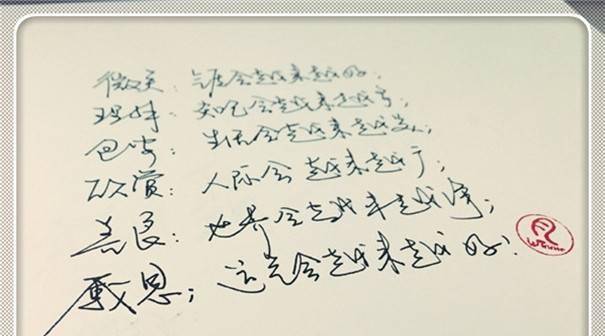 微笑：会越来越好；
理解：会越来越多；
包容：生活会越来越；
欣赏：人际会越来越广；
善良：世界会越来越净；
感恩：运气会越来越好！